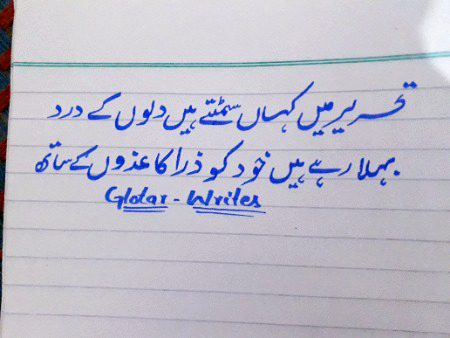 تحریر میں کہاں سمٹتے ہیں دلوں کے درد
بہلا رہے ہیں خود کو ذرا کاغذوں کے ساتھ
Glotar - Writes